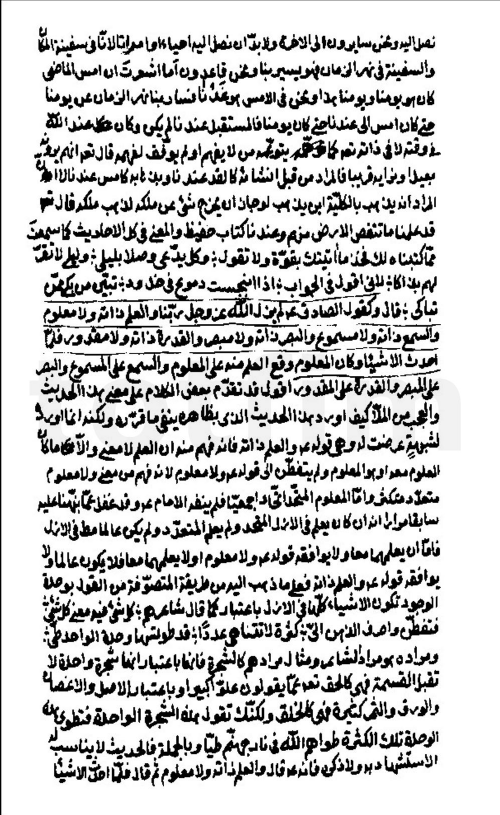 نصل اليه ونحن سايرون الى الاخرة ولا بد ان نصل اليه احياء او امواتا لانا في سفينة المكان
والسفينة في نهر الزمان فهو يسير بنا ونحن قاعدون آما اشعرت ان امس الماضي
كان هو يومنا ويومنا هذا ونحن في الامس هو فسار بنا نهر الزمان عن يومنا
حتى كان امس الى عندنا حتى كان يومنا فالمستقبل عندنا لم يكن وكان عند الله
في وقته لا في ذاته تعه كما يتوهمه من لا يفهم او لم يوقف لفهمه قال تعه انهم يرونه
بعيدا ونراه قريبا فالمراد من قبل انشائه كالغد عندنا وبذهابه كامس عندنا لا ان
المراد انه يذهب بالكلية اين يذهب لو جاز ان يخرج شئ عن ملكه لذهب ملكه قال تعه
قد علمنا ما تنقص الارض منهم وعندنا كتاب حفيظ والمعنى في كل الاحاديث كما سمعت
مما كتبنا لك فخذ ما آتيتك بقوة ولا تقول: وكل يدعي وصلا بليلى: وليلى لا تقر
لهم بذاكا: لاني اقول في الجواب: اذا انبجست دموع في خدود: تبين من بكى ممن
تباكى: قال وكقول الصادق عه لم يزل الله عز وجل ربنا والعلم ذاته ولا معلوم
والسمع ذاته ولا مسموع والبصر ذاته ولا مبصر والقدرة ذاته ولا مقدور فلما
احدث الاشياء وكان المعلوم وقع العلم منه على المعلوم والسمع على المسموع والبصر
على المبصر والقدرة على المقدور، اقول قد تقدم بعض الكلام على معنى هذا الحديث
والعجب من الملا كيف اورد هذا الحديث الذي بظاهره ينفي ما قرره ولكنه انما اورده
لشبهة عرضت له وهي قوله عه والعلم ذاته فانه فهم منه ان العلم لا معنى والا
المعلوم معه او هو المعلوم ولم يتفطن الى قوله عه ولا معلوم لانه فهم من معنى ولا معلوم
متعدد متكثر واما المعلوم المتحد اجمعيا فلم ينفه الامام عه وقد غفل عما نبهنا عليه
سابقا مرارا انه ان كان يعلم في الازل المتحد ولم يعلم المتعدد ولم يكن عالما مط في الازل
فاما ان يعلمهما معا ولا يوافقه قوله عه ولا معلوم او لا يعلمهما معا فلا يكون عالما ولا
يوافقه قوله عه والعلم ذاته فعلى ما ذهب اليه من طريقة المتصوفة من القول بوحدة
الوجود تكون الاشياء كلها في الازل باعتبار كما قال شاعرهم: كل شئ فيه معنى كل شئ
فتفطن واصرف الذهن الي: كثرة لا تتناهى عددا: قد طوتها وحدة الواحد طي:
ومراده هو مراد الشاعر ومثال مرادهم كالشجرة فانها باعتبار انها شجرة واحدة لا
تقبل القسمة فهي كالحق تعه عما يقولون علوا كبيرا وباعتبار الاصل والاغصان
والورق والثمر كثيرة فهي كالخلق ولكنك تقول هذه الشجرة الواحدة فتطوي هذه
الوحدة تلك الكثرة طواهم الله في نار جهنم طيا وبالجملة فالحديث لا يناسب له
الاستشهاد به ولا ذكره فانه عه قال والعلم ذاته ولا معلوم ثم قال فلما احدث الاشياء